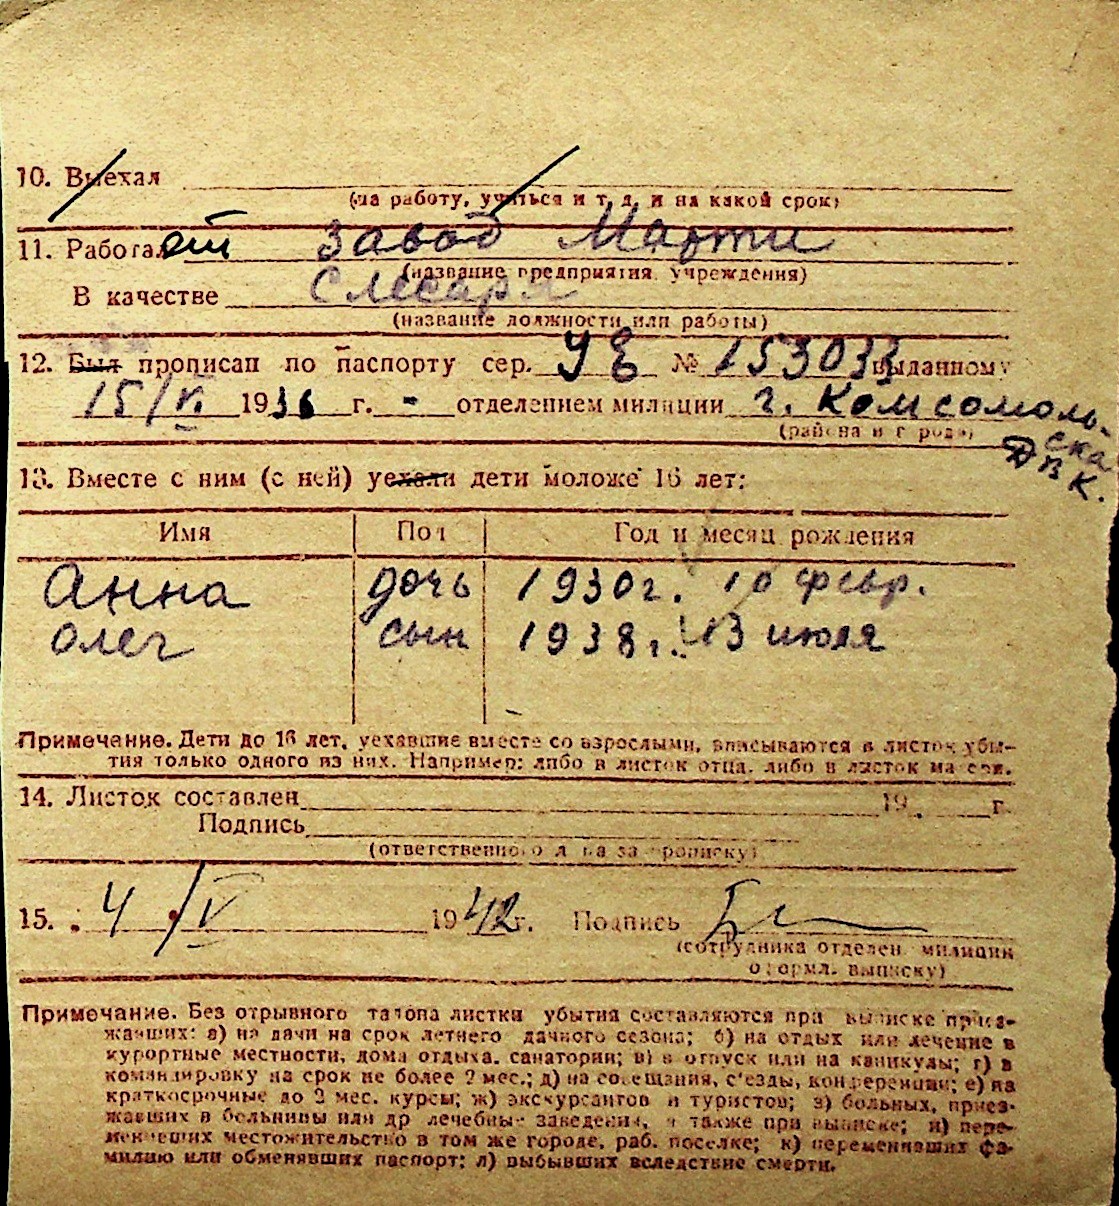 10. Выехал
(на работу, учиться и т. д. и на какой срок)
11. Работает завод Марти
(название предприятия, учреждения)
В качестве Слесаря
(название должности или работы)
12. Был прописан по паспорту сер. УЕ № 153033 выданному
15/VI. 1936 г. - отделением милиции г. Комсомоль-
(района и города) ска
ДВК.
13. Вместе с ним (с ней) уехали дети моложе 16 лет:
Имя Пол Год и месяц рождения
Анна дочь 1930 г. 10 февр.
Олег сын 1938 г. 13 июля
Примечание. Дети до 16 лет, уехавшие вместе со взрослыми, вписываются в листок убы-
тия только одного из них. Например: либо в листок отца, либо в листок матери.
14. Листок составлен 19 г.
Подпись
(ответственного лица за прописку)
15. 4/V 1942 г. Подпись
(сотрудника отделен. милиции
оформл. выписку)
Примечание. Без отрывного талона листки убытия составляются при выписке приез-
жавших: а) на дачи на срок летнего дачного сезона; б) на отдых или лечение в
курортные местности, дома отдыха, санатории; в) в отпуск или на каникулы; г) в
командировку на срок не более 2 мес.; д) на совещания, с'езды, конференции; е) на
краткосрочные до 2 мес. курсы; ж) экскурсантов и туристов; з) больных, приез-
жавших в больницы или др лечебные заведения, а также при выписке; и) пере-
менивших местожительство в том же городе, раб. поселке; к) переменивших фа-
милию или обменявших паспорт; л) выбывших вследствие смерти.